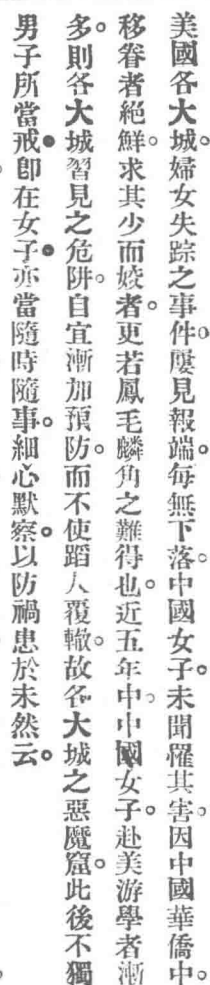 美國各大城。婦女失踪之事件。屢見報端。每無下落。中國女子。未聞罹其害。因中國華僑中。
移眷者絕鮮。求其少而姣者。更若鳳毛麟角之難得也。近五年中。中國女子。赴美游學者漸
多。則各大城習見之危阱。自宜漸加預防。而不使蹈人覆轍。故各大城之惡魔窟。此後不獨
男子所當戒。卽在女子。亦當隨時隨事。細心默察。以防禍患於未然云。